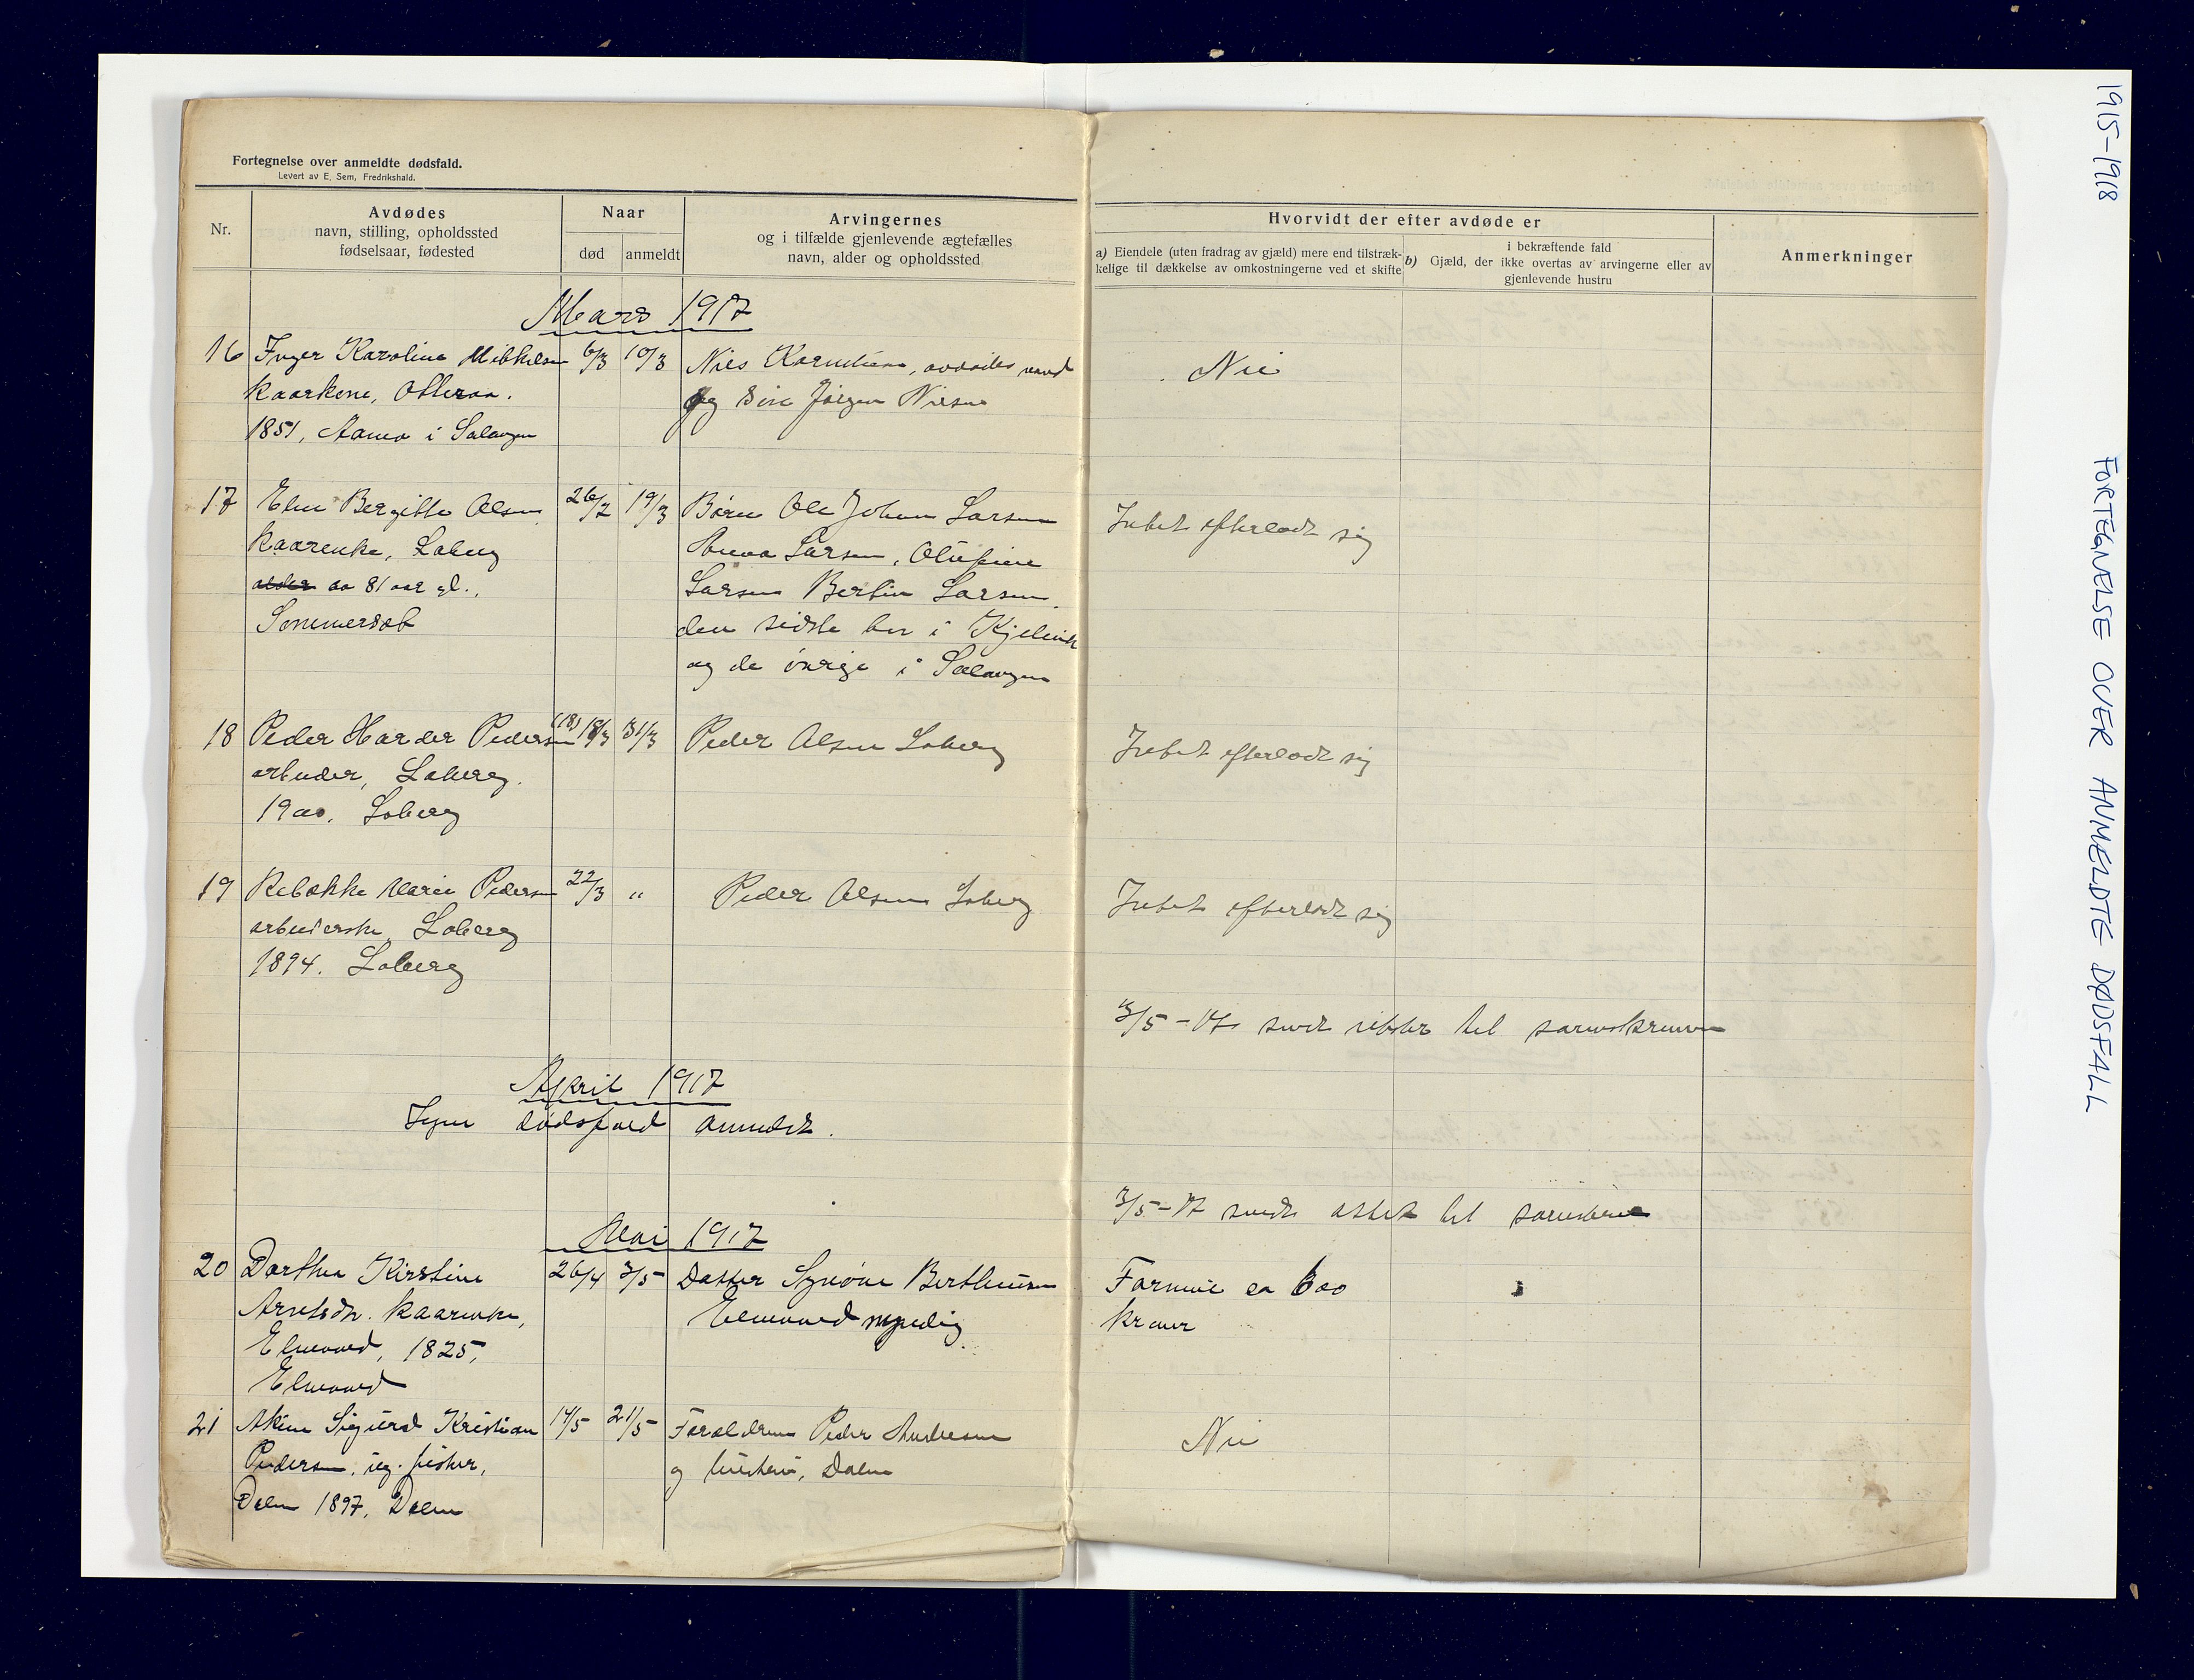 Fortegnelse over anmeldte dødsfald.
Levert av E. Sem, Fredrikshald.
Nr.
Avdødes
navn, stilling, opholdssted
fødselsaar, fødested
Naar
død
anmeldt
Arvingernes
og i tilfælde gjenlevende ægtefælles
navn, alder og opholdssted
Hvorvidt der efter avdøde er
a) Eiendele (uten fradrag av gjæld) mere end tilstræk-
kelige til dækkelse av omkostningerne ved et skifte
i bekræftende fald
b) Gjæld, der ikke overtas av arvingerne eller av
gjenlevende hustru
Anmerkninger
Mars 1917
16 Inger Karoline Mikkelsen 6/3 10/3 Nils Kornelius, avdødes mand Nei
Kaarkone, og Søn Jørgen Nilsen
1851, i Salangen
17 Elen Bergitte Olsen 26/2 19/3 Børn Ole Johan Larsen Intet efterlodt sig
Kaarenke, Løberg Anna Larsen, Olufine
81 aar gl., Larsen Bertin Larsen.
Sommersæt den sidste bor i
og de øvrige i Salangen
18 Peder Harder Pedersen (18) 18/3 31/3 Peder Olsen Løberg Intet efterlodt sig
arbeider, Løberg.
1900. Løberg
19 Rebækka Marie Pedersen 22/3 " Peder Olsen Løberg Intet efterlodt sig
arbeiderske, Løberg
1894. Løberg
3/5-17 sendt utskr til sorenskriveren
April 1917
Ingen dødsfald anmeldt.
3/5-17 sendt attest til
Mai 1917
20 Dorthea Kirstine 26/4 3/5 Datter Synøve Bertheusen Formue ca 600
Arntsdtr. Kaarenke, Elvevand myndig. kroner
Elvevand, 1825,
Elvevand
21 Sigurd Kristian 14/5 21/5 Forældrene Peder Andersen Nei
Pedersen, ug. fisker, og hustru, Dalen
Dalen 1897, Dalen
1915-1918 FORTEGNELSE OVER ANMELDTE DØDSFALL